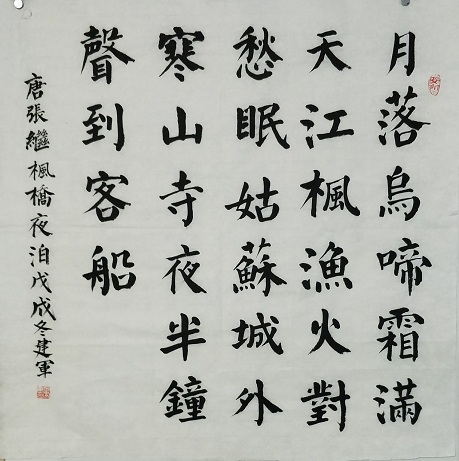 月落烏啼霜滿
天江楓漁火對
愁眠姑蘇城外
寒山寺夜半鐘
聲到客船
唐張繼楓橋夜泊戊戌冬建軍